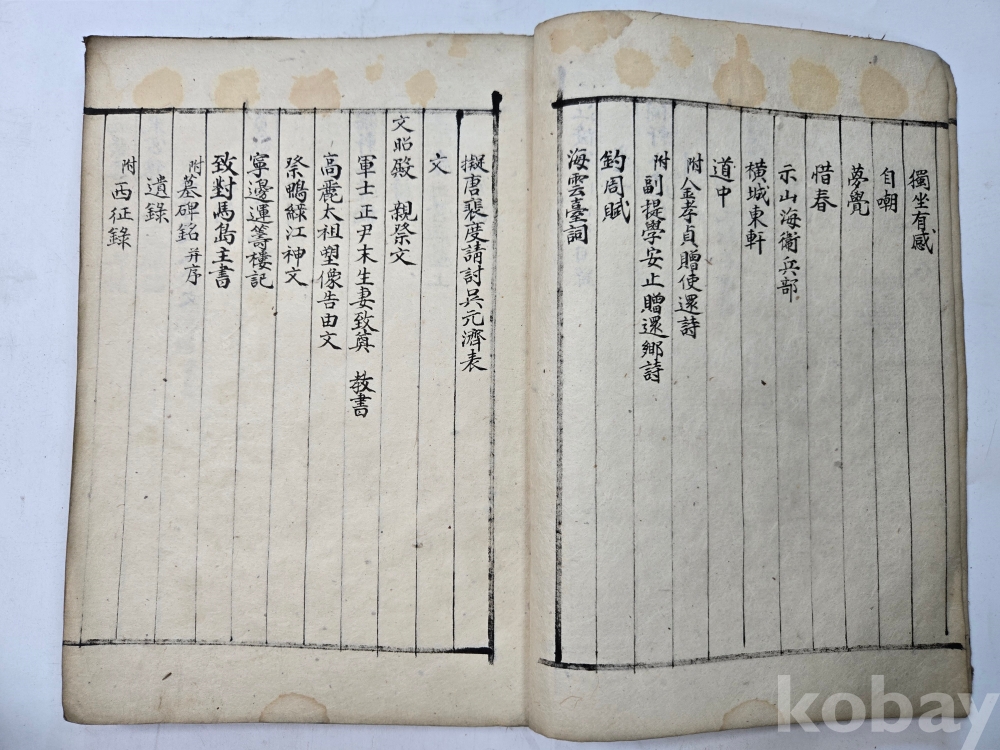 獨坐有感
自嘲
夢覺
惜春
示山海衛兵部
橫城東軒
道中
附 金孝貞贈使還詩
附 副提學安止贈還鄉詩
釣周賦
海雲臺詞
擬唐裴度請討吳元濟表
文
文昭殿 親祭文
軍士正尹末生妻致奠 教書
高麗太祖塑像告由文
祭鴨綠江神文
寧邊運籌樓記
致對馬島主書
附 墓碑銘 并序
遺錄
附 西征錄
kobay